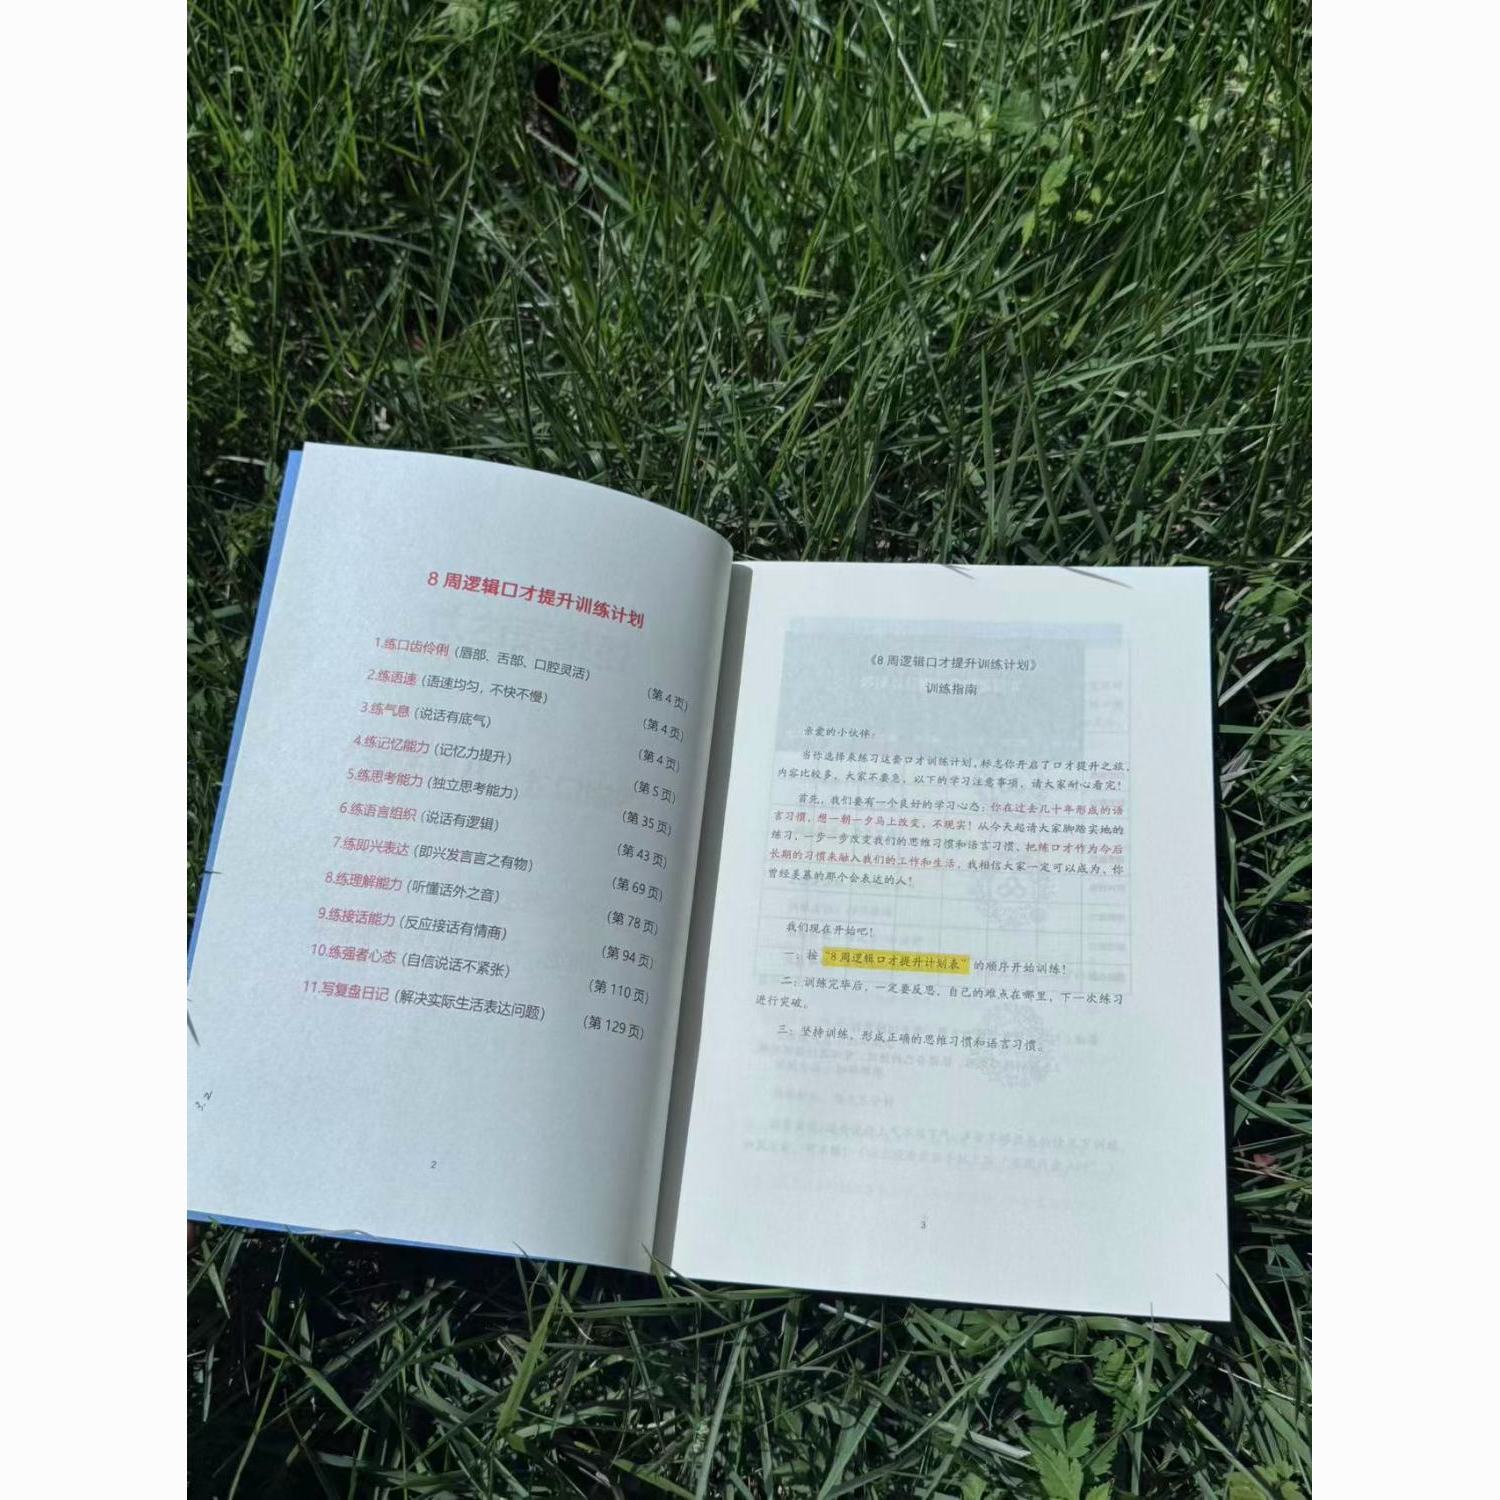 8 周逻辑口才提升训练计划
1.练口齿伶俐（唇部、舌部、口腔灵活） （第 4 页）
2.练语速（语速均匀，不快不慢） （第 4 页）
3.练气息（说话有底气） （第 4 页）
4.练记忆能力（记忆力提升） （第 5 页）
5.练思考能力（独立思考能力） （第 35 页）
6.练语言组织（说话有逻辑） （第 43 页）
7.练即兴表达（即兴发言言之有物） （第 69 页）
8.练理解能力（听懂话外之音） （第 78 页）
9.练接话能力（反应接话有情商） （第 94 页）
10.练强者心态（自信说话不紧张） （第 110 页）
11.写复盘日记（解决实际生活表达问题） （第 129 页）
3.2
2
《8 周逻辑口才提升训练计划》
训练指南
亲爱的小伙伴：
当你选择来练习这套口才训练计划，标志你开启了口才提升之旅，
内容比较多，大家不要急，以下的学习注意事项，请大家耐心看完！
首先，我们要有一个良好的学习心态：你在过去几十年形成的语
言习惯，想一朝一夕马上改变，不现实！从今天起请大家脚踏实地的
练习，一步一步改变我们的思维习惯和语言习惯、把练口才作为今后
长期的习惯来融入我们的工作和生活，我相信大家一定可以成为，你
曾经羡慕的那个会表达的人！
我们现在开始吧！
一：按“8 周逻辑口才提升计划表”的顺序开始训练！
二：训练完毕后，一定要反思，自己的难点在哪里，下一次练习
进行突破。
三：坚持训练，形成正确的思维习惯和语言习惯。
3